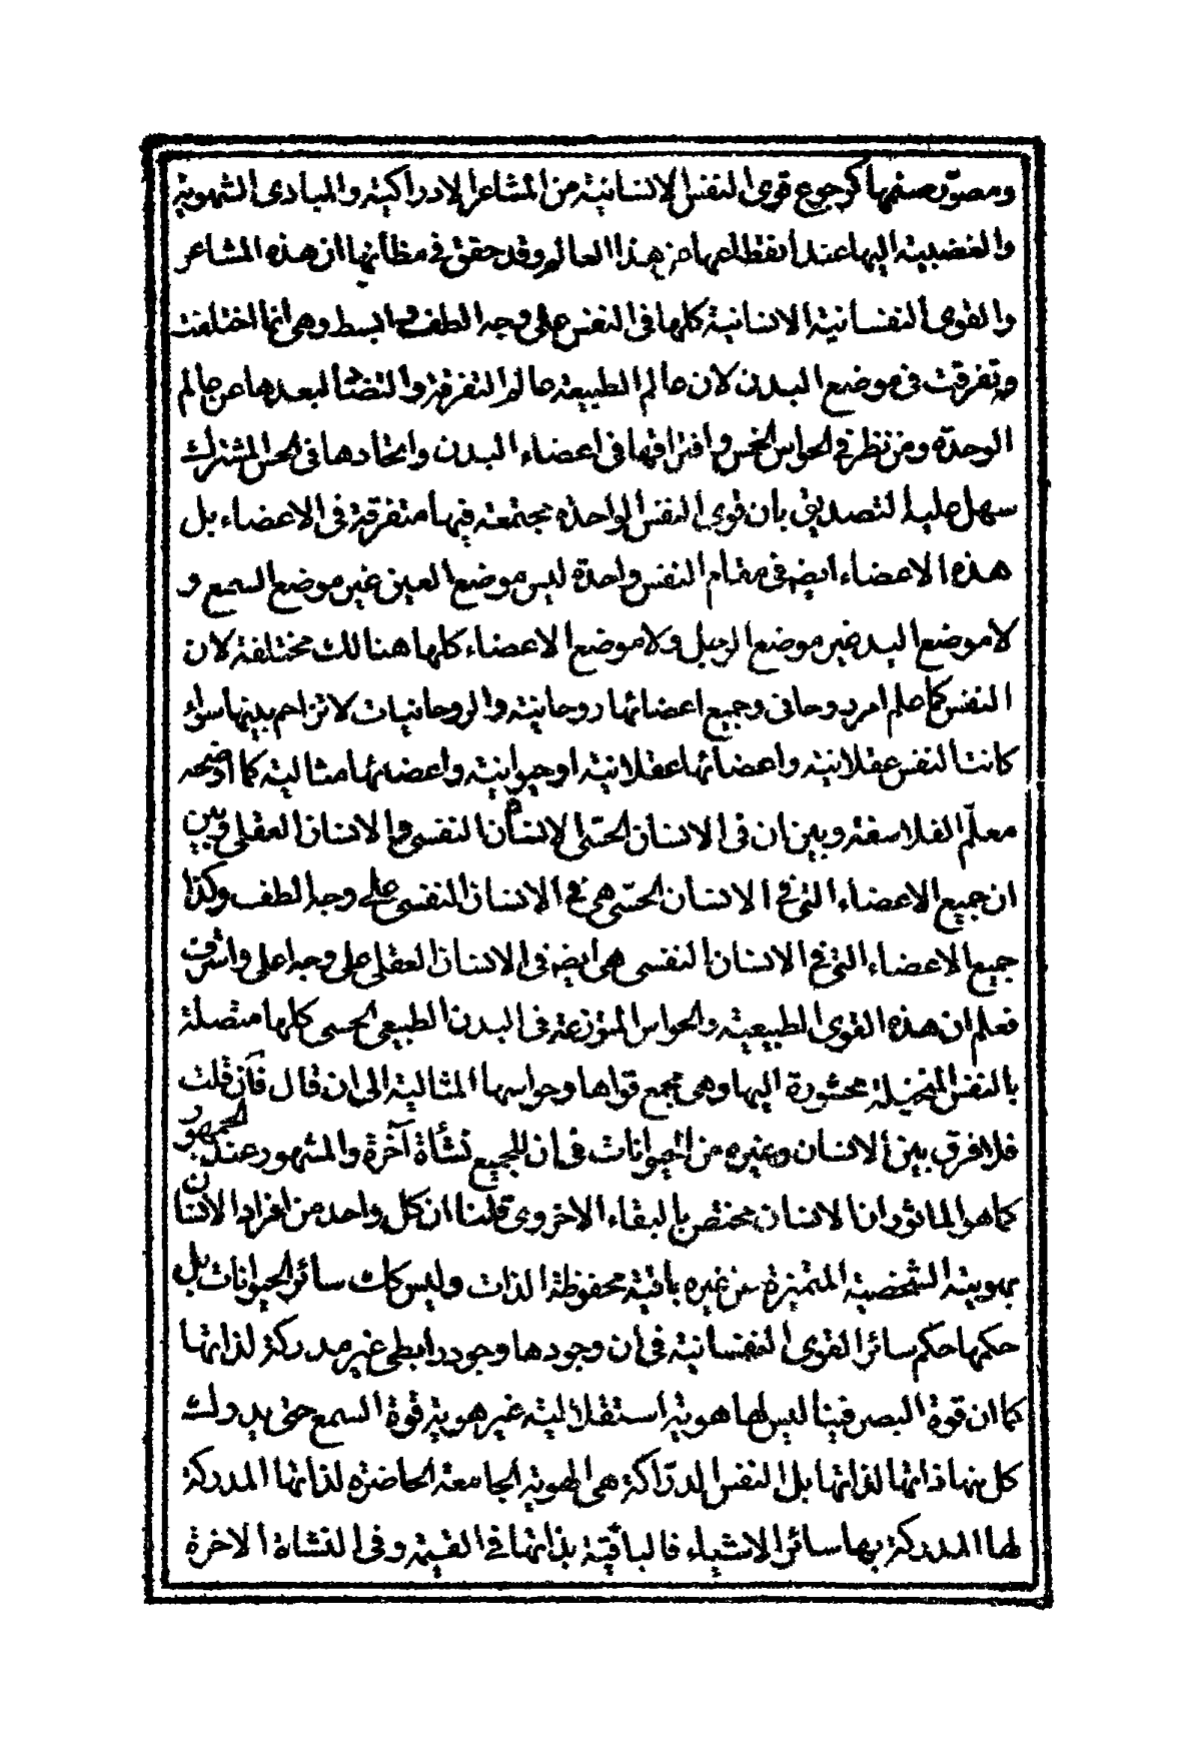 ومصوّر صنمها كرجوع قوى النفس الانسانية من المشاعر الادراكية والمبادى الشهوية
والغضبية اليها عند انقطاعها من هذا العالم وقد حقق فى مظانها ان هذه المشاعر
والقوى النفسانية الانسانية كلها فى النفس على وجه الطف وابسط وهى انما اختلفت
وتفرقت فى موضع البدن لان عالم الطبيعة عالم التفرقة والتضاد لبعدها عن عالم
الوحدة ومن نظر فى الحواس الخمس وافتراقها فى اعضاء البدن واتحادها فى الحس المشترك
سهل عليه التصديق بان قوى النفس الواحدة مجتمعة فيها متفرقة فى الاعضاء بل
هذه الاعضاء ايضه فى مقام النفس واحدة ليس موضع العين غير موضع السمع و
لا موضع اليد غير موضع الرجل ولا موضع الاعضاء كلها هنالك مختلفة لان
النفس كما علم امر روحانى وجميع اعضائها روحانية والروحانيات لا تزاحم بينها سواء
كانت النفس عقلانية واعضائها عقلانية او حيوانية واعضائها مثالية كما اوضحه
معلّم الفلاسفة وبين ان فى الانسان الحسّى الانسان النفسى والانسان العقلى وبين
ان جميع الاعضاء التى فى الانسان الحسّى هى فى الانسان النفسى على وجه الطف وكذا
جميع الاعضاء التى فى الانسان النفسى هى ايضه فى الانسان العقلى على وجه اعلى واشرف
فعلم ان هذه القوى الطبيعية والحواس المتوزعة فى البدن الطبيعى الحسى كلها متصلة
بالنفس المتخيلة محشورة اليها وهى مجمع قواها وحواسها المثالية الى ان قال فان قلت
فلا فرق بين الانسان وغيره من الحيوانات فى ان للجميع نشأة آخرة والمشهور عند الجمهور
كما هو الماثور ان الانسان مختص بالبقاء الاخروى قلنا ان كل واحد من افراد الانسان
بهويته الشخصية المتميزة عن غيره باقية محفوظة الذات وليس كك سائر الحيوانات بل
حكمها حكم سائر القوى النفسانية فى ان وجودها وجود رابطى غير مدركة لذاتها
كما ان قوة البصر فينا ليس لها هوية استقلالية غير هوية قوة السمع حتى يدرك
كل منها ذاتها لذاتها بل النفس الدرّاكة هى الهوية الجامعة الحاضرة لذاتها المدركة
لها المدركة بها سائر الاشياء فالباقية بذاتها فى القيمة وفى النشاة الاخرة